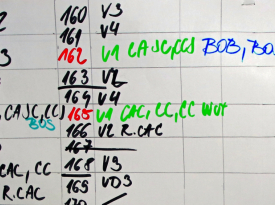 160 V3
161 V4
3 162 V1 CAJC,CCS BOB, BO
163 V2
164 V4
CAJC,CC) 165 V1 CAC, CC, CC WOT
BOS 166 V2 R.CAC
167
CAC, CC 168 V3
R.CAC 169 VO3
170